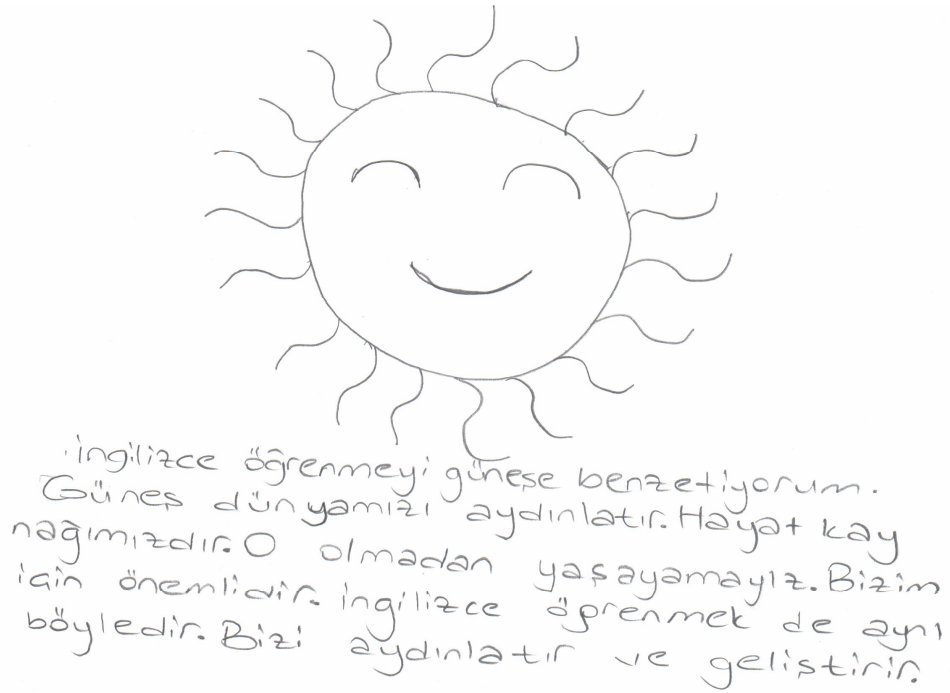 ingilizce öğrenmeyi güneşe benzetiyorum.
Güneş dünyamızı aydınlatır. Hayat kay
nağımızdır. O olmadan yaşayamayız. Bizim
için önemlidir. ingilizce öğrenmek de aynı
böyledir. Bizi aydınlatır ve geliştirir.